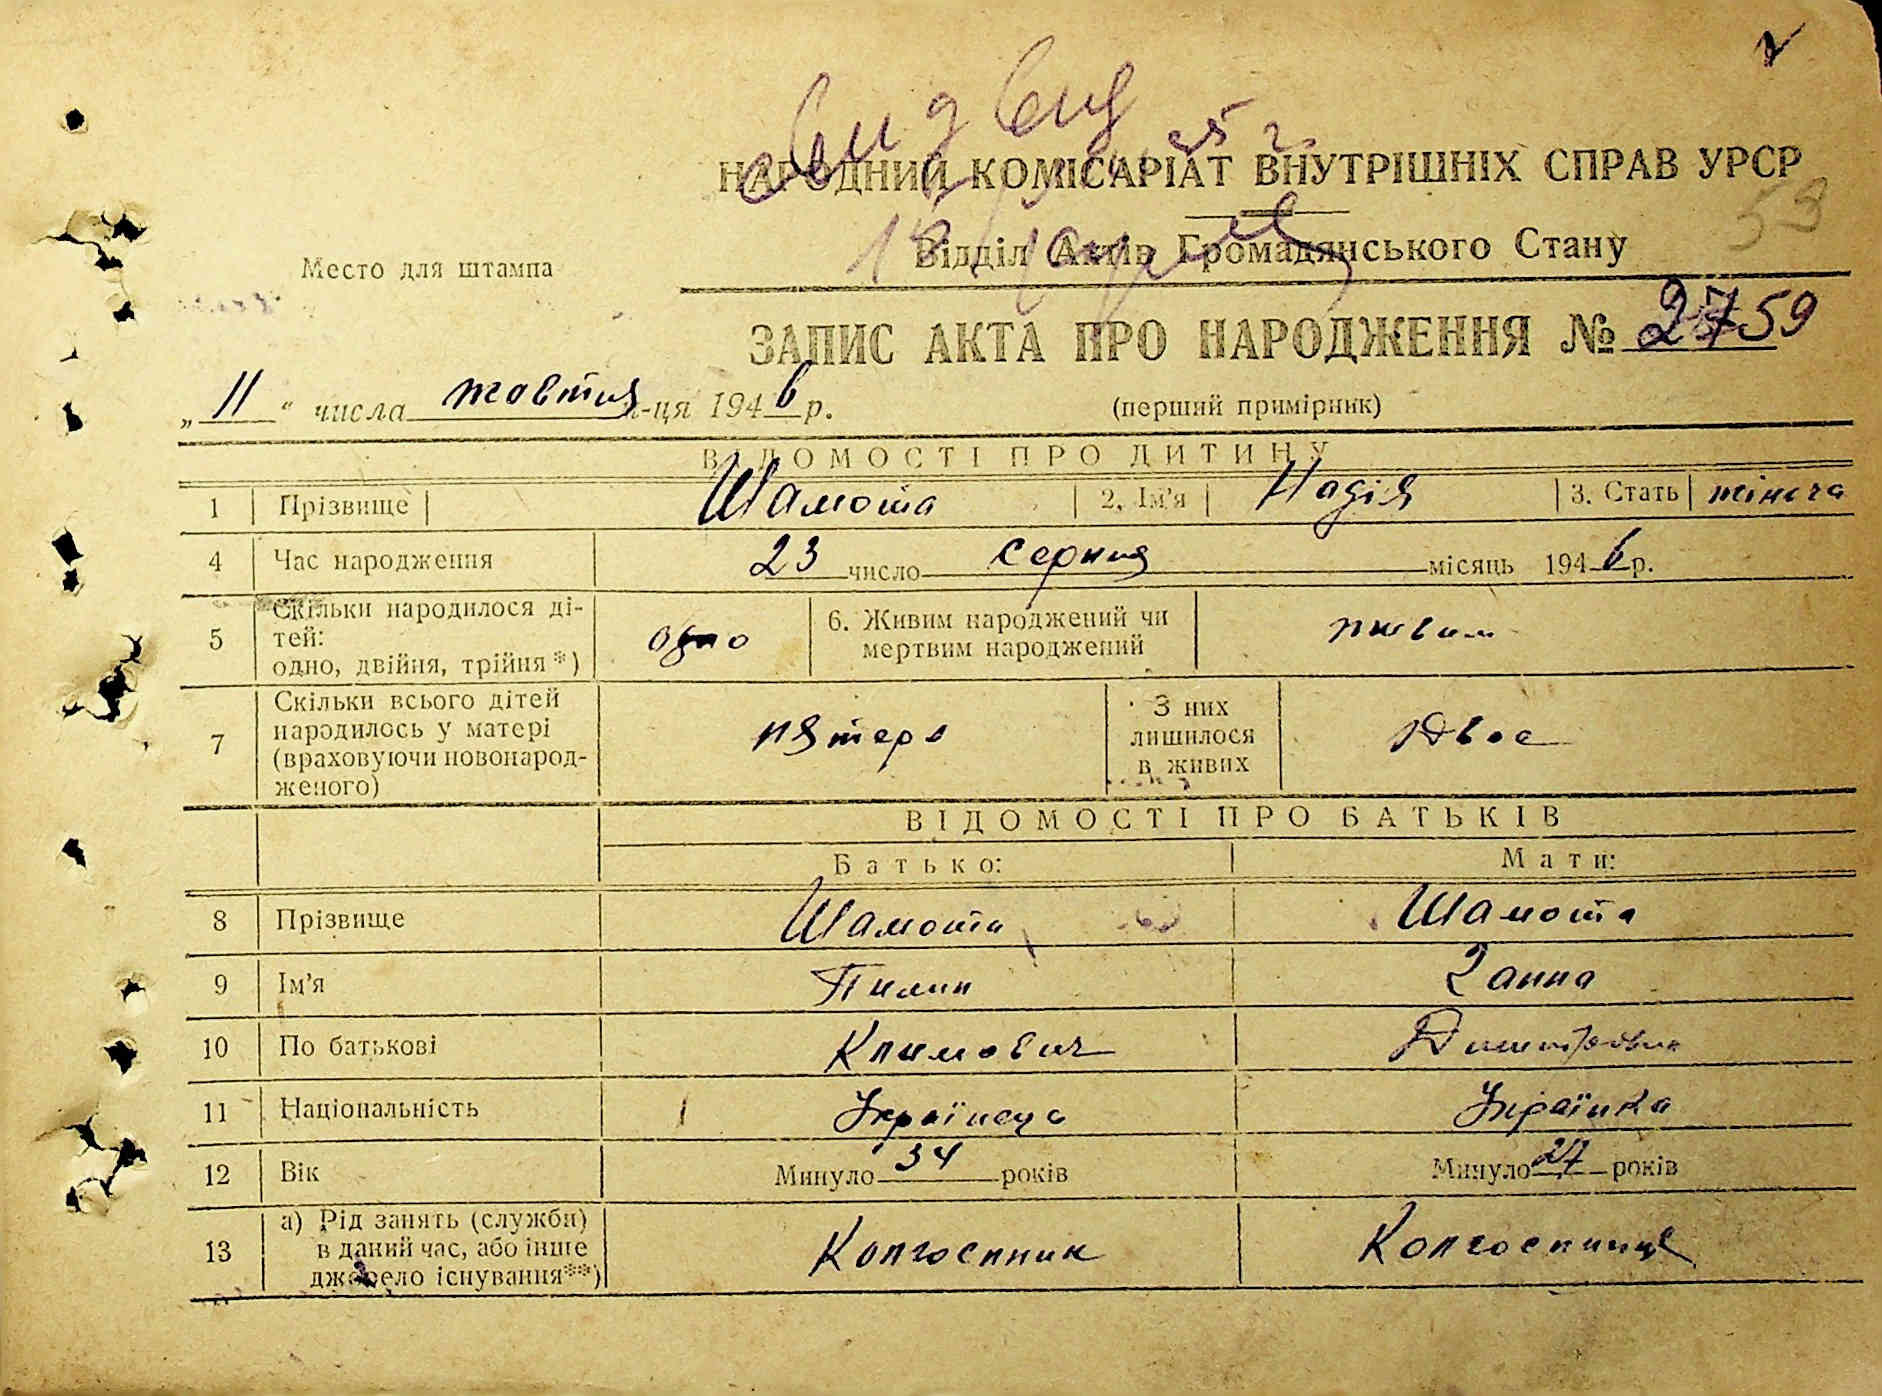 НАРОДНИЙ КОМІСАРІАТ ВНУТРІШНІХ СПРАВ УРСР
53
Відділ Актів Громадянського Стану
Место для штампа
ЗАПИС АКТА ПРО НАРОДЖЕННЯ № 59
„11“ числа жовтня м-ця 1946 р.
(перший примірник)
ВІДОМОСТІ ПРО ДИТИНУ
1 Прізвище Шамота 2. Ім'я Надія 3. Стать жіноча
4 Час народження 23 число серпня місяць 1946 р.
5 Скільки народилося ді-
тей:
одно, двійня, трійня*) одно
6. Живим народжений чи
мертвим народжений живим
7 Скільки всього дітей
народилось у матері
(враховуючи новонарод-
женого) пятеро
З них
лишилося
в живих Двоє
ВІДОМОСТІ ПРО БАТЬКІВ
Батько: Мати:
8 Прізвище Шамота Шамота
9 Ім'я Пилип Ганна
10 По батькові Климович Дмитрівна
11 Національність Українець Українка
12 Вік Минуло 34 років Минуло 27 років
13 а) Рід занять (служби)
в даний час, або інше
джерело існування**) Колгоспник Колгоспниця